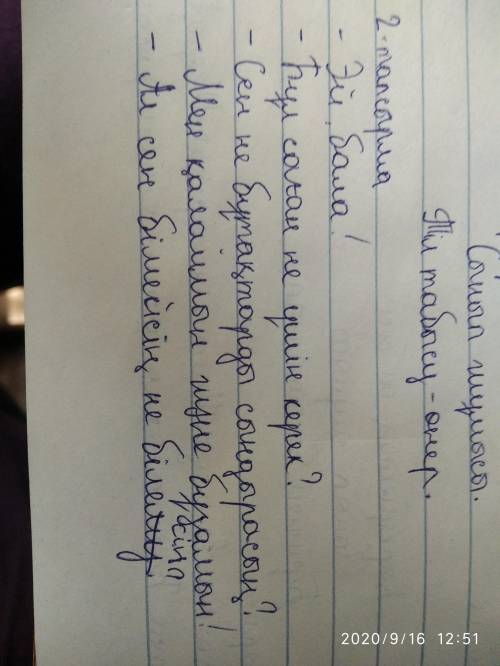 Сынып жұмысы.
Тіл табысу - өнер.
2-тапсырма
- Эй, бала!
- Бұл саған не үшін керек?
- Сен не бұтақтарды сындырасың?
- Мен қалаймын және бұзамын!
- Ал сен білмейсің, не білесің?
2020/9/16 12:51